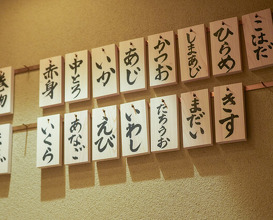 こはだ
ひらめ
しまあじ
かつお
あじ
いか
中とろ
赤身
きす
まだい
たちうお
いわし
えび
あなご
いくら